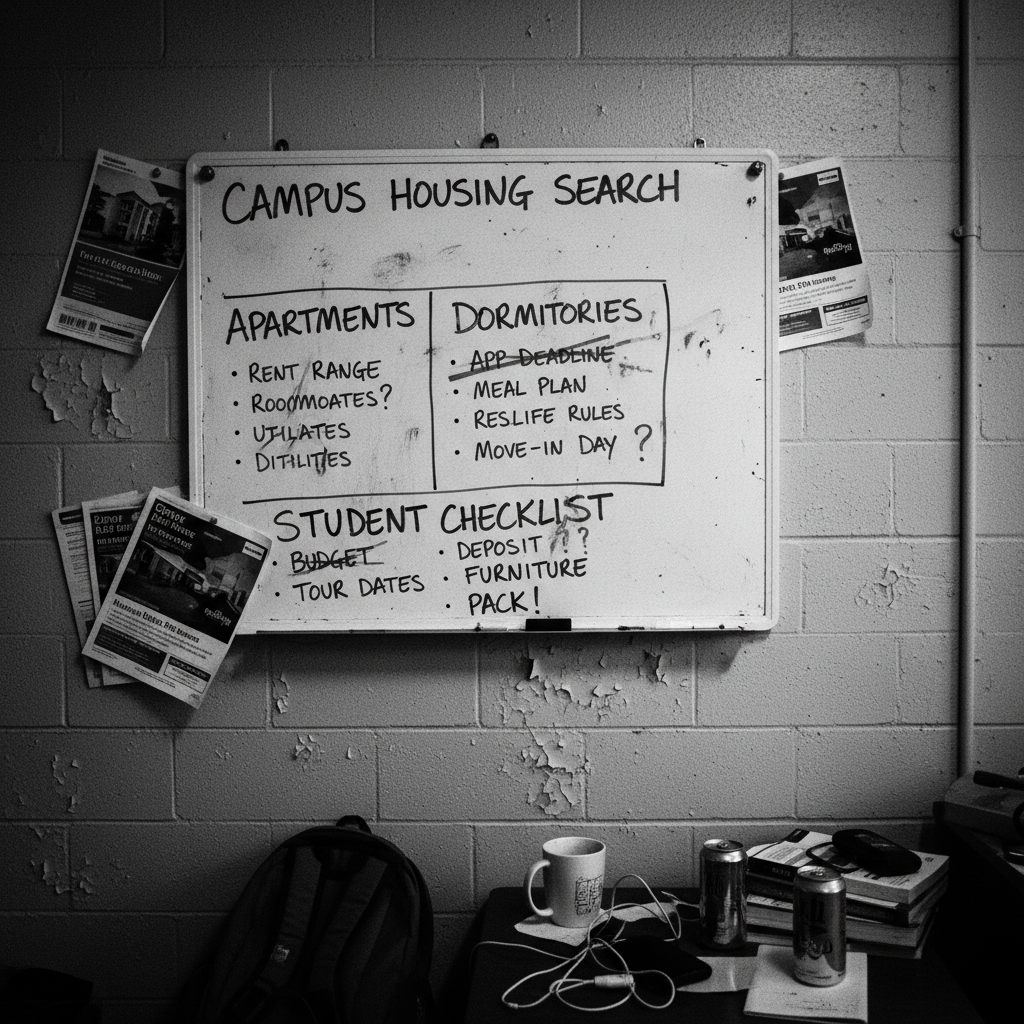 CAMPUS HOUSING SEARCH
APARTMENTS
• RENT RANGE
• ROOMOATES?
• UTILATES
• DITILITIES
DORMITORIES
• APP DEADLINE
• MEAL PLAN
• RESLIFE RULES
• MOVE-IN DAY ?
STUDENT CHECKLIST
• BUDGET
• TOUR DATES
• DEPOSIT ??
• FURNITURE
• PACK!